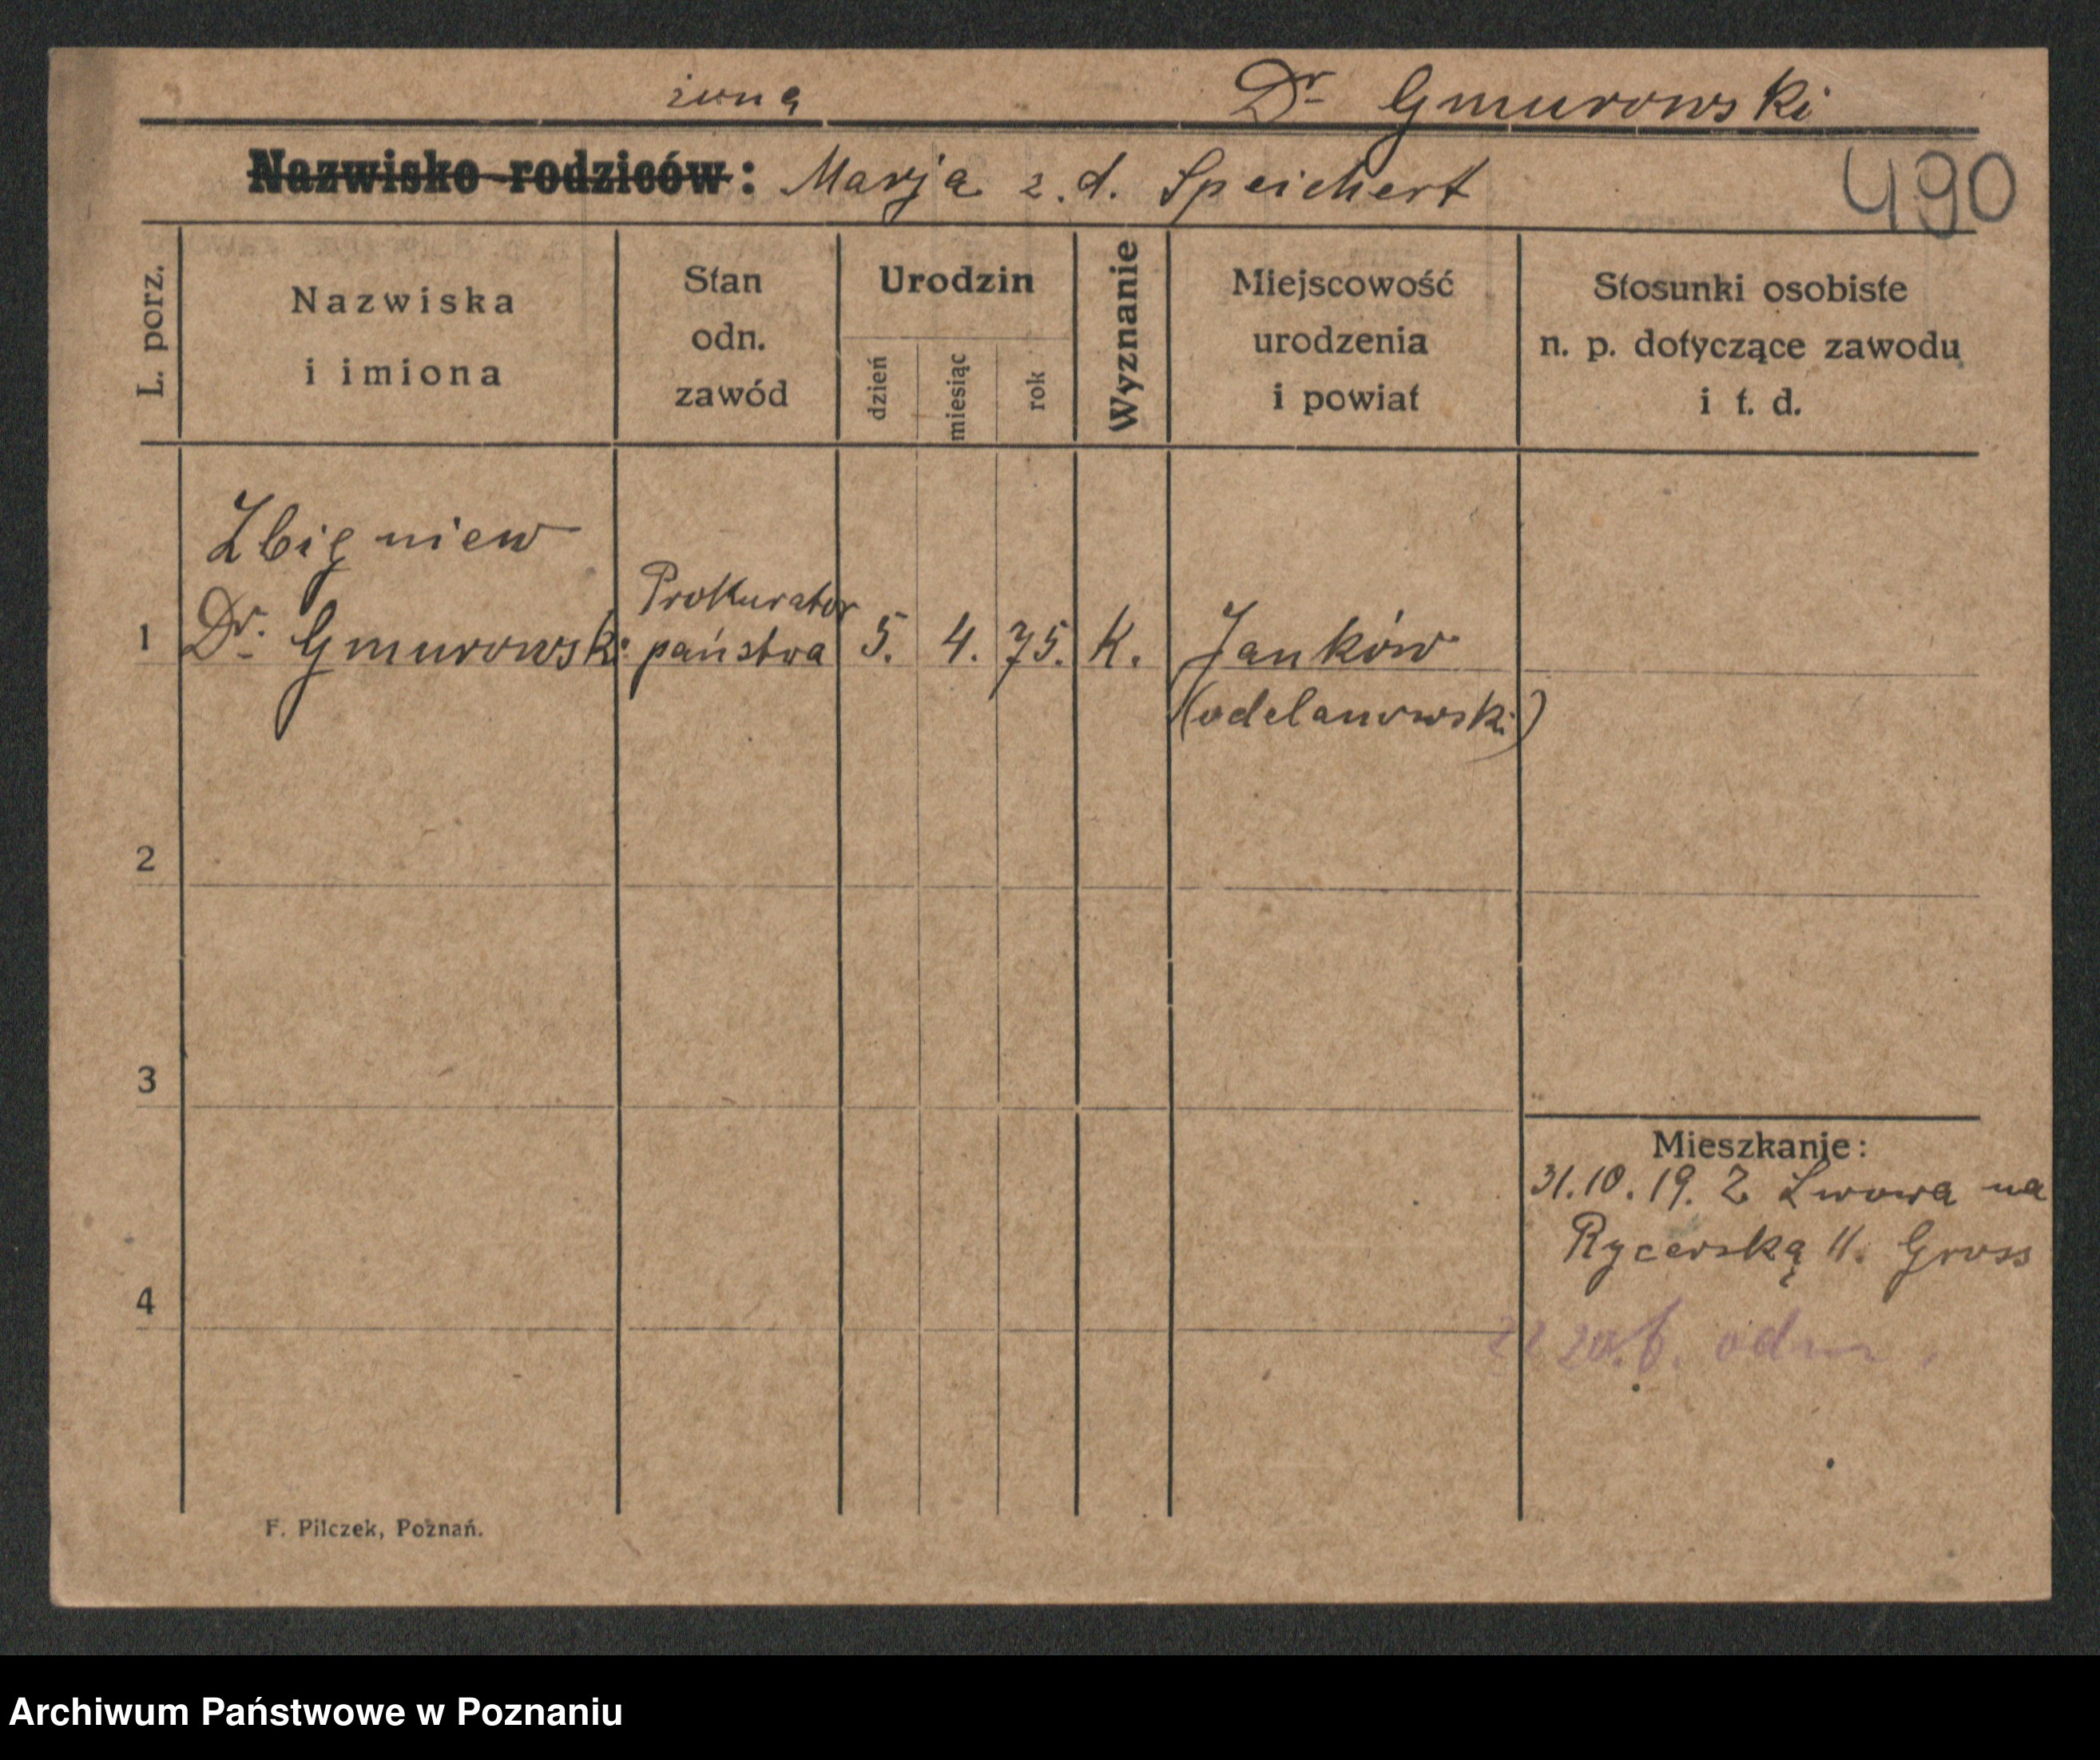 żoną Dr Gmurowski
Nazwisko rodziców: Marja z. d. Speichert 490
L. porz.
Nazwiska
i imiona
Stan
odn.
zawód
Urodzin
dzień
miesiąc
rok
Wyznanie
Miejscowość
urodzenia
i powiat
Stosunki osobiste
n. p. dotyczące zawodu
i t. d.
Zbigniew
1 Dr. Gmurowski Prokurator państwa 5. 4. 75. K. Janków
(odelanowski)
2
3
Mieszkanie:
31.10.19. Z Lwowa na
Rycerską 11. Gross
4
F. Pilczek, Poznań.
Archiwum Państwowe w Poznaniu